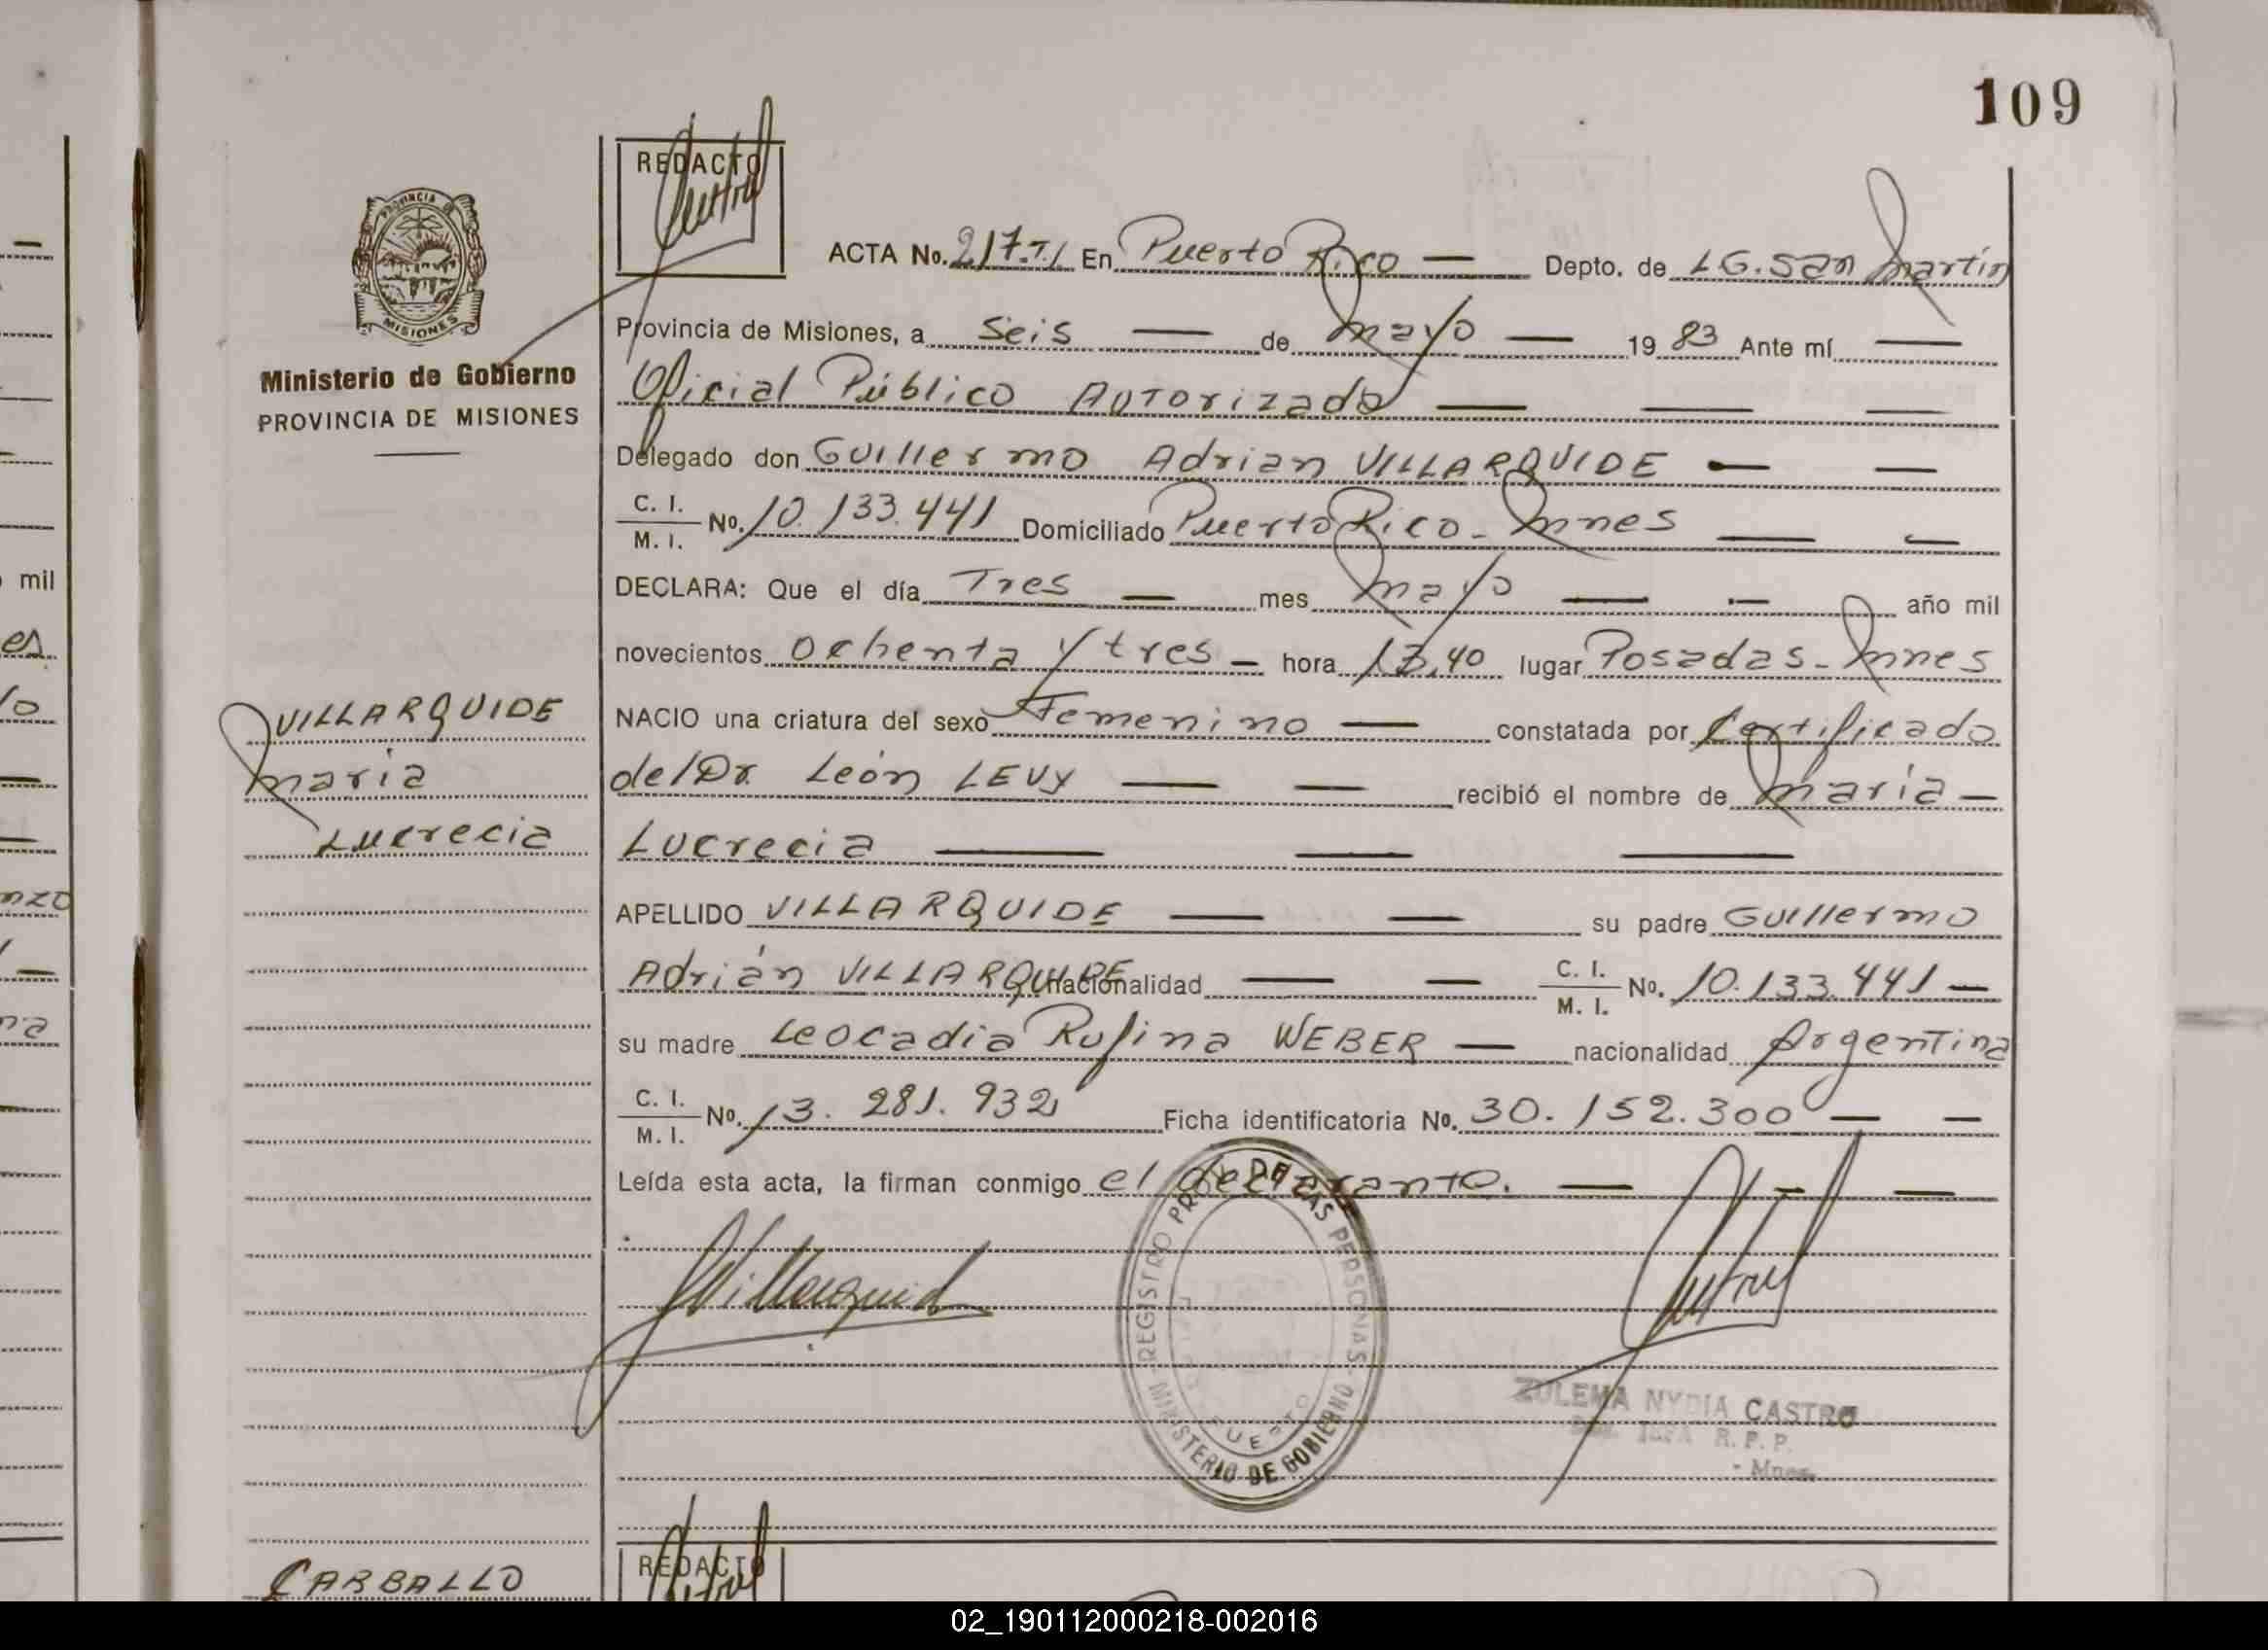 109
REDACTO
ACTA No. 217.T.I En Puerto Rico — Depto. de L G. San Martín
PROVINCIA DE
MISIONES
Ministerio de Gobierno
PROVINCIA DE MISIONES
Provincia de Misiones, a Seis — de Mayo — 1983 Ante mí —
Oficial Público Autorizado — — —
Delegado don Guillermo Adrian VILLARQUIDE — —
C. I.
M. I. No. 10.133.441 Domiciliado Puerto Rico - Mnes — —
DECLARA: Que el día Tres — mes Mayo — — año mil
novecientos Ochenta y tres — hora 13,40 lugar Posadas - Mnes
VILLARQUIDE
Maria
Lucrecia
NACIO una criatura del sexo Femenino — constatada por Certificado
del Dr. León LEVY — — recibió el nombre de María —
Lucrecia — — —
APELLIDO VILLARQUIDE — — su padre Guillermo
Adrián VILLARQUIDE nacionalidad — — C. I.
M. I. No. 10.133.441 —
su madre Leocadia Rufina WEBER — nacionalidad Argentina
C. I.
M. I. No. 13. 281. 932 Ficha identificatoria No. 30. 152. 300 — —
Leída esta acta, la firman conmigo el declarante. — — —
REGISTRO DE LAS PERSONAS
MINISTERIO DE GOBIERNO
ZULEMA NYDIA CASTRO
R. P. P.
- Mnes.
CARBALLO
REDACTO
mil
02_190112000218-002016